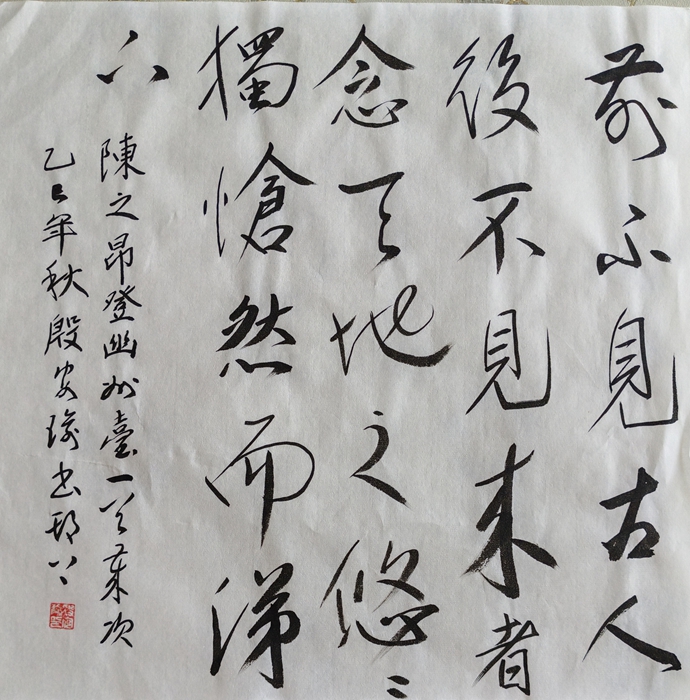 前不見古人
後不見来者
念天地之悠〻
獨愴然而涕
下
陳之昂登幽州臺一首歲次
乙巳年秋殷安瑜书